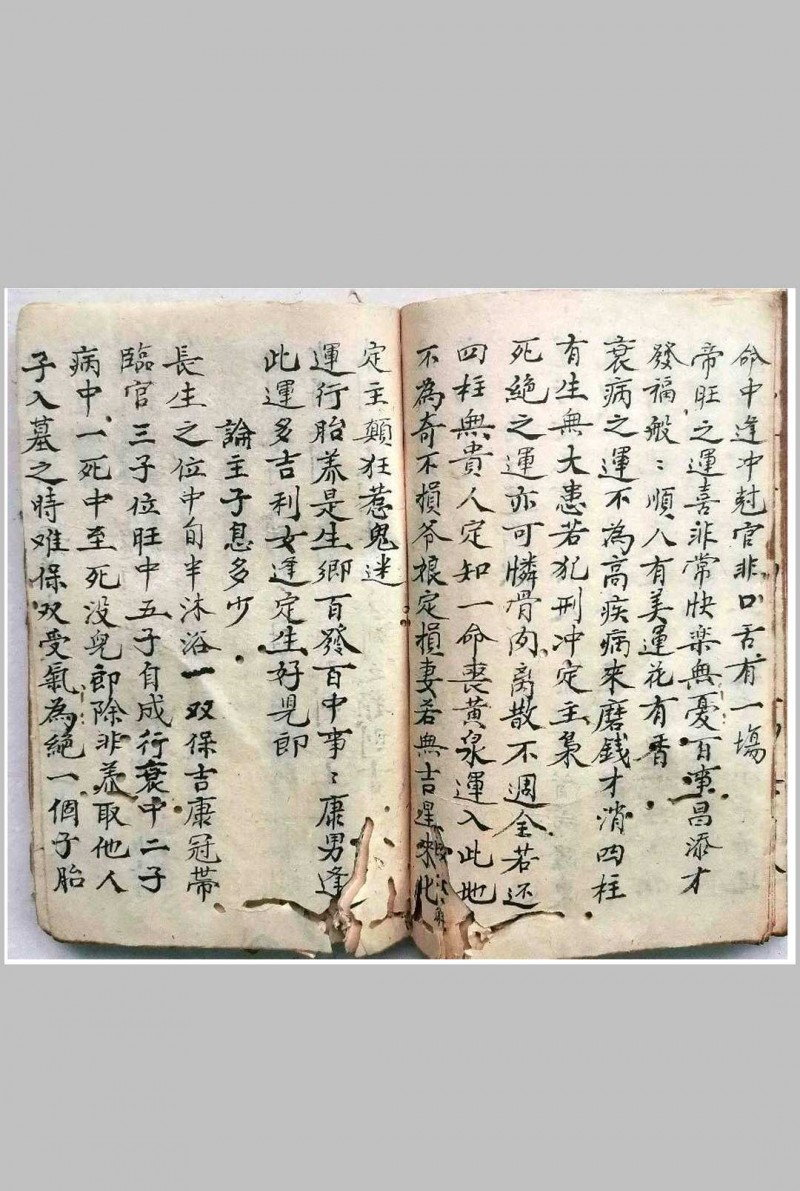 命中逢冲尅官非口舌有一塲
帝旺之運喜非常快楽無憂百事昌添才
發福般〻順人有美運花有香
衰病之運不為高疾病來磨錢才消四柱
有生無大患若犯刑冲定主梟
死絕之運亦可憐骨肉离散不週全若还
四柱無貴人定知一命喪黃泉運入此地
不為奇不損爷娘定損妻若無吉星來
定主顛狂惹鬼迷
運行胎养是生鄉百發百中事〻康男逢
此運多吉利女逢定生好児郎
論主子息多少
長生之位中旬半沐浴一双保吉康冠帶
臨官三子位旺中五子自成行衰中二子
病中一死中至死没兒郎除非养取他人
子入墓之時难保双受氣為絕一個子胎